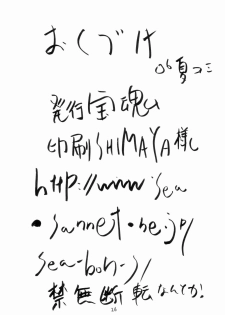 おくづけ
06夏コミ
発行宝魂
印刷SHIMAYA様
http://www.sea
・sannet・ne.jp/
sea-bon-s/
禁無断転なんてか!
14